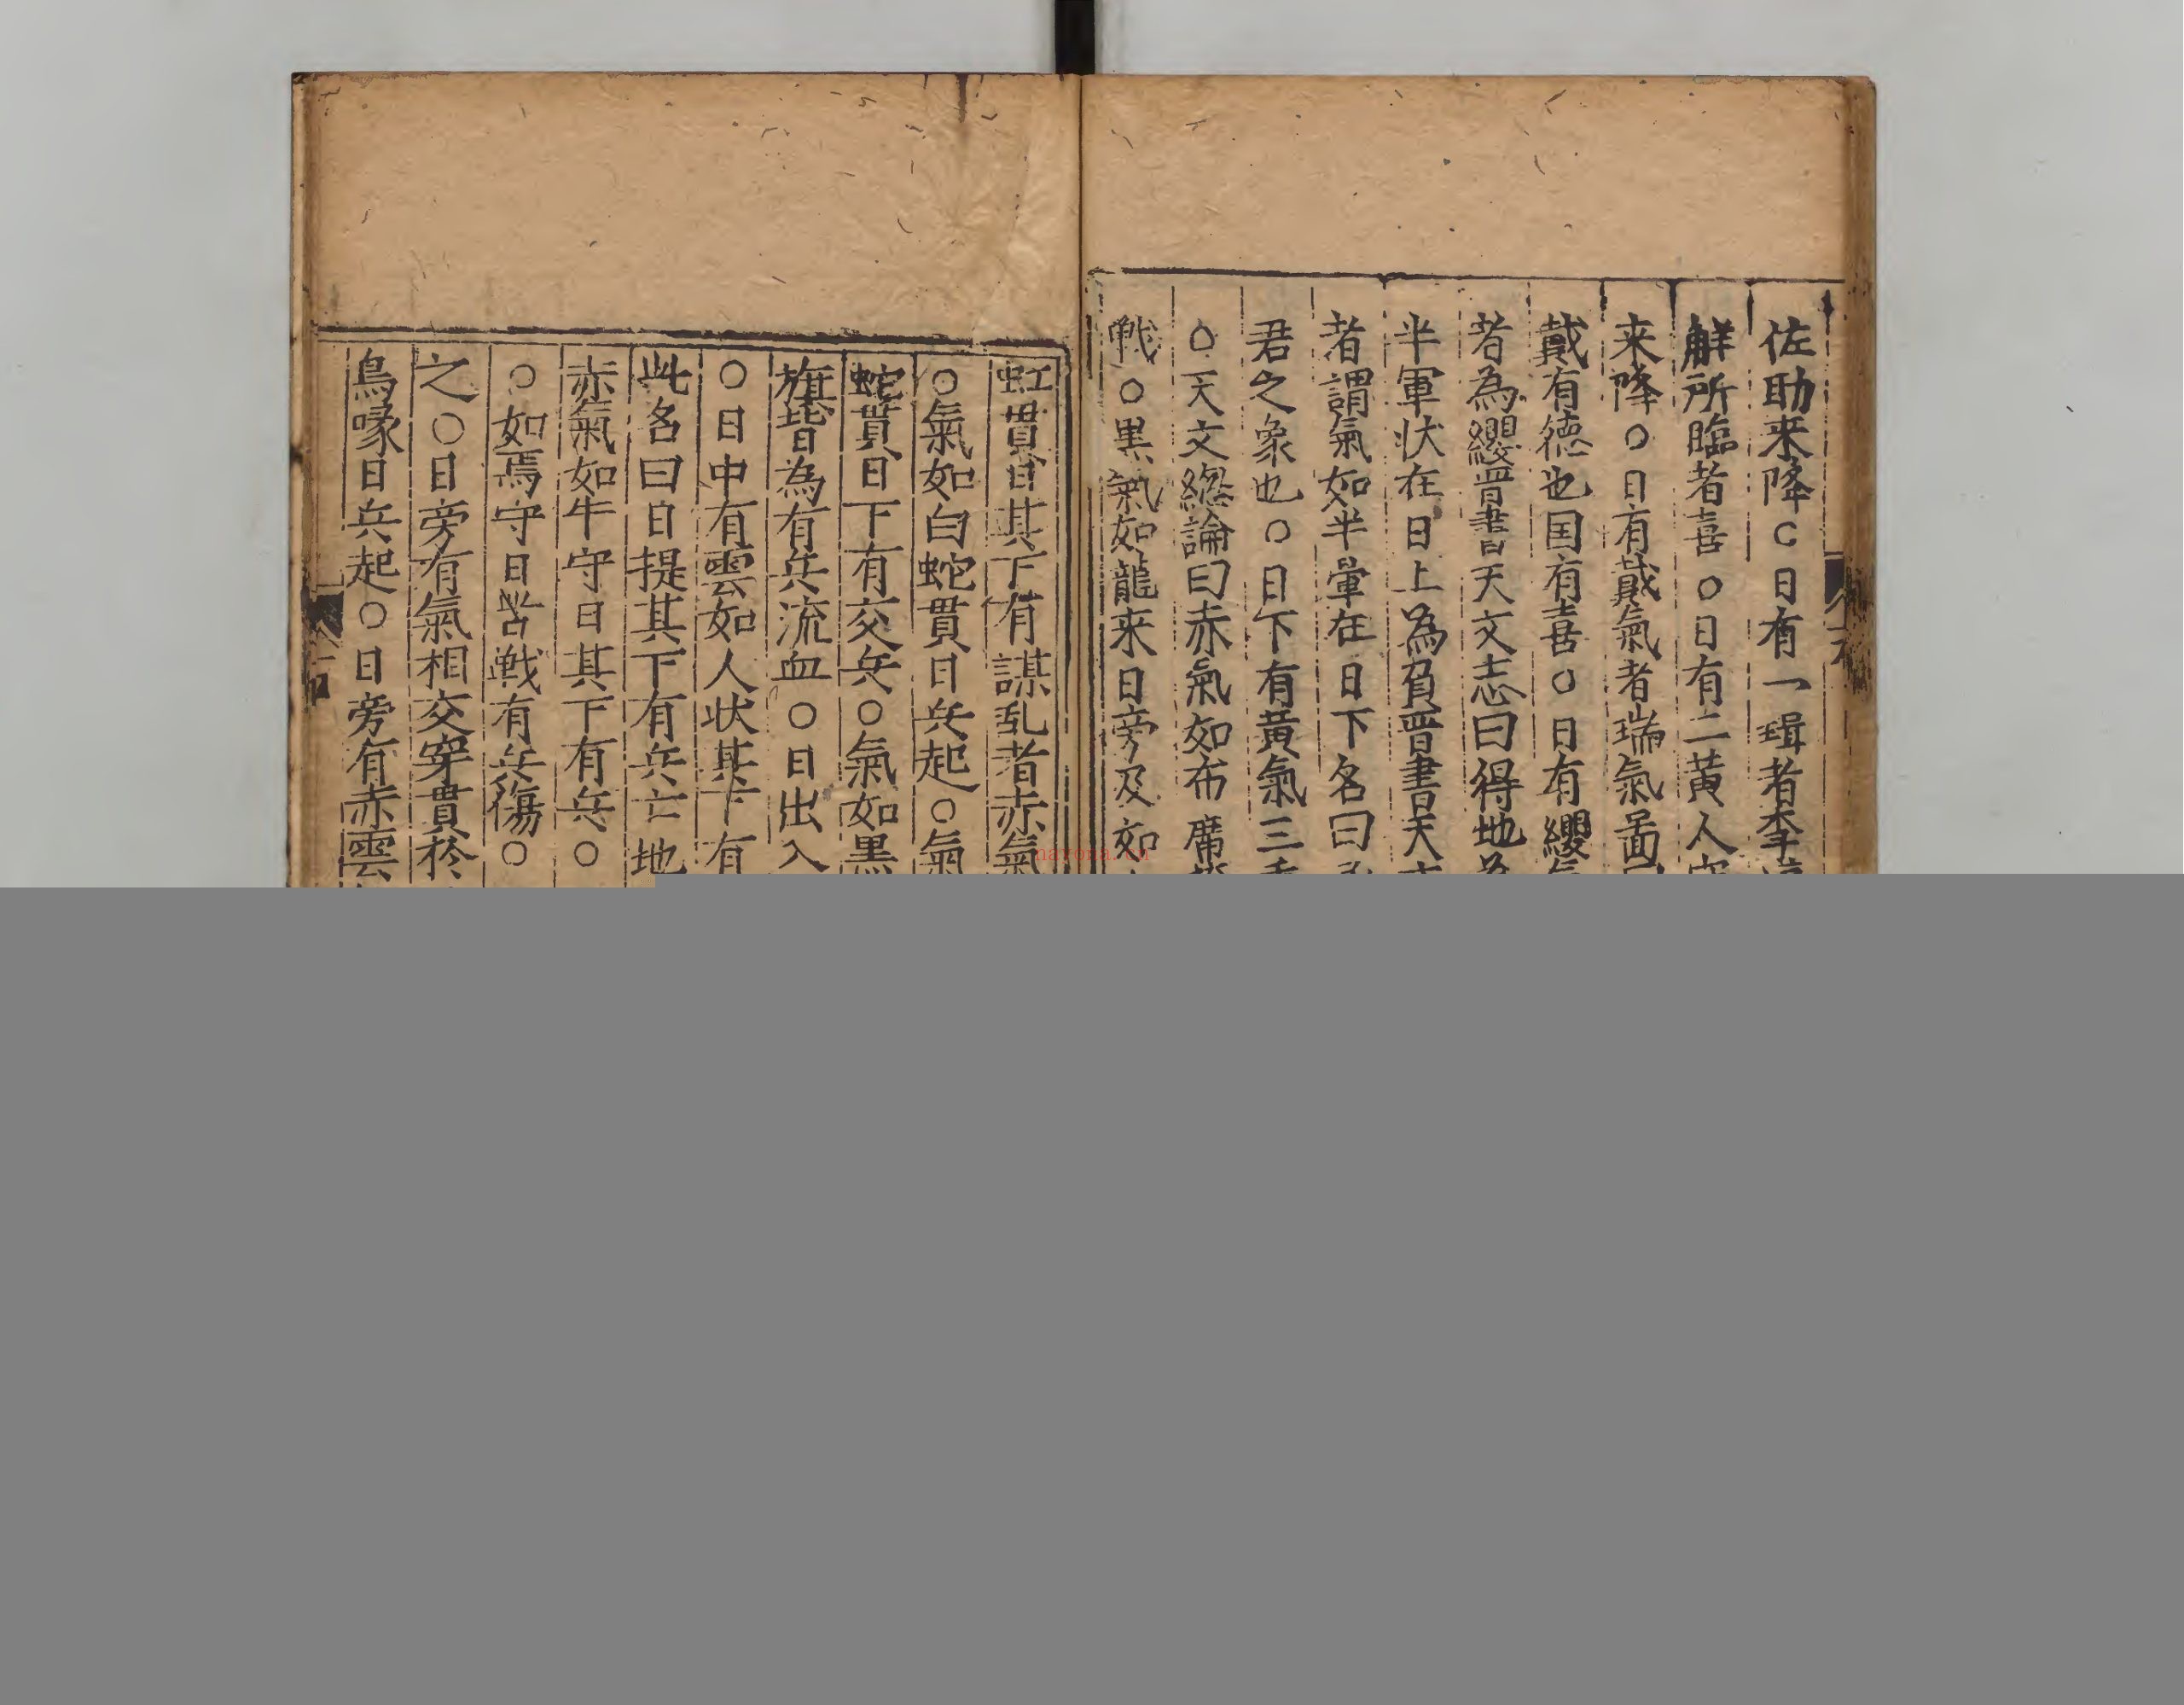 佐助来降○日有一珥者
觧所臨者喜○日有二黄人
来降○日有戴氣者瑞氣啚
戴有德也国有喜○日有纓
者為纓晋書天文志曰得地
半軍状在日上為負晋書天
者謂氣如半暈在日下名曰
君之象也○日下有黄氣三
○天文緫論曰赤氣如布
戰○黒氣如龍来日旁及如
虹貫日其下有謀乱者赤氣
○氣如白蛇貫日兵起○氣
蛇貫日下有交兵○氣如黒
旗皆為有兵流血○日出入
○日中有雲如人状其下有
此名曰日提其下有兵亡地
赤氣如牛守日其下有兵○
○如焉守日苦戦有兵傷○
之○日旁有氣相交穿貫於
鳥喙日兵起○日旁有赤雲
nayona.cn